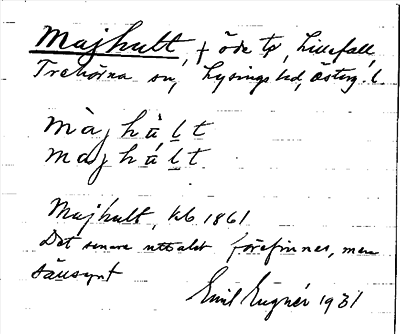 Majhult, † öde tp, Lillefall,
Trehörna sn, Lysings hd, Österg. l
màj hù l t
maj hú l t
Majhult, kb 1861
Det senare uttalet förefinnes, men
sällsynt
Emil Eugnér 1931